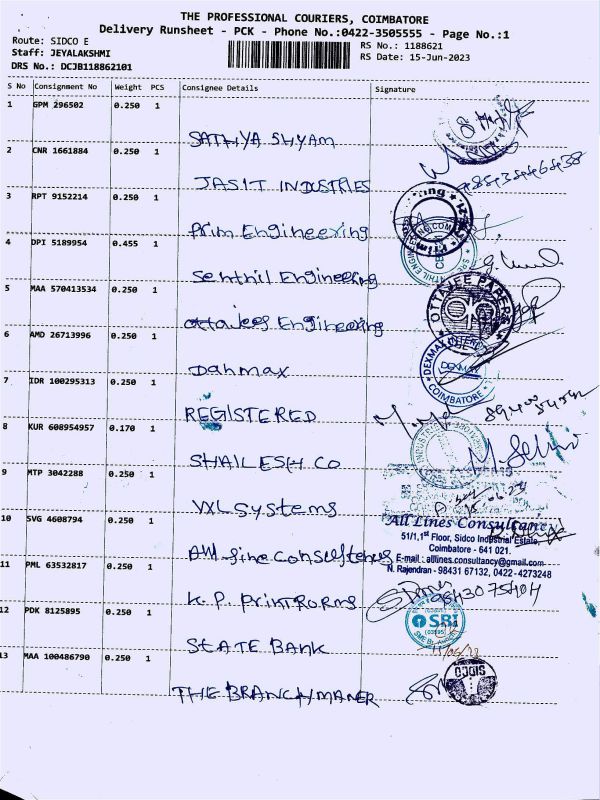 THE PROFESSIONAL COURIERS, COIMBATORE
Delivery Runsheet - PCK - Phone No.:0422-3505555 - Page No.:1
Route: SIDCO E
Staff: JEYALAKSHMI
DRS No.: DCJB118862101
RS No.: 1188621
RS Date: 15-Jun-2023
S No Consignment No Weight PCS Consignee Details Signature
1 GPM 296502 0.250 1
SATHYA SHYAM
2 CNR 1661884 0.250 1
JASIT INDUSTRIES
3 RPT 9152214 0.250 1
Prim Engineering
4 DPI 5189954 0.455 1
Senthil Engineering
5 MAA 570413534 0.250 1
OTTAJEE PAPERS
Ottajees Engineering
6 AMD 26713996 0.250 1
DEXMAX
COIMBATORE
Dahmax
7 IDR 100295313 0.250 1
REGISTERED
8 KUR 608954957 0.170 1
SHAILESH CO
9 MTP 3042288 0.250 1
VXL Systems
10 SVG 4608794 0.250 1
All Lines Consultancy
51/1,1st Floor, Sidco Industrial Estate,
Coimbatore - 641 021.
E-mail : alllines.consultancy@gmail.com
N. Rajendran - 98431 67132, 0422-4273248
11 PML 63532817 0.250 1
K. P. Printforms
12 PDK 8125895 0.250 1
SBI
STATE BANK
13 MAA 100486790 0.250 1
SIDCO
THE BRANCH MANER